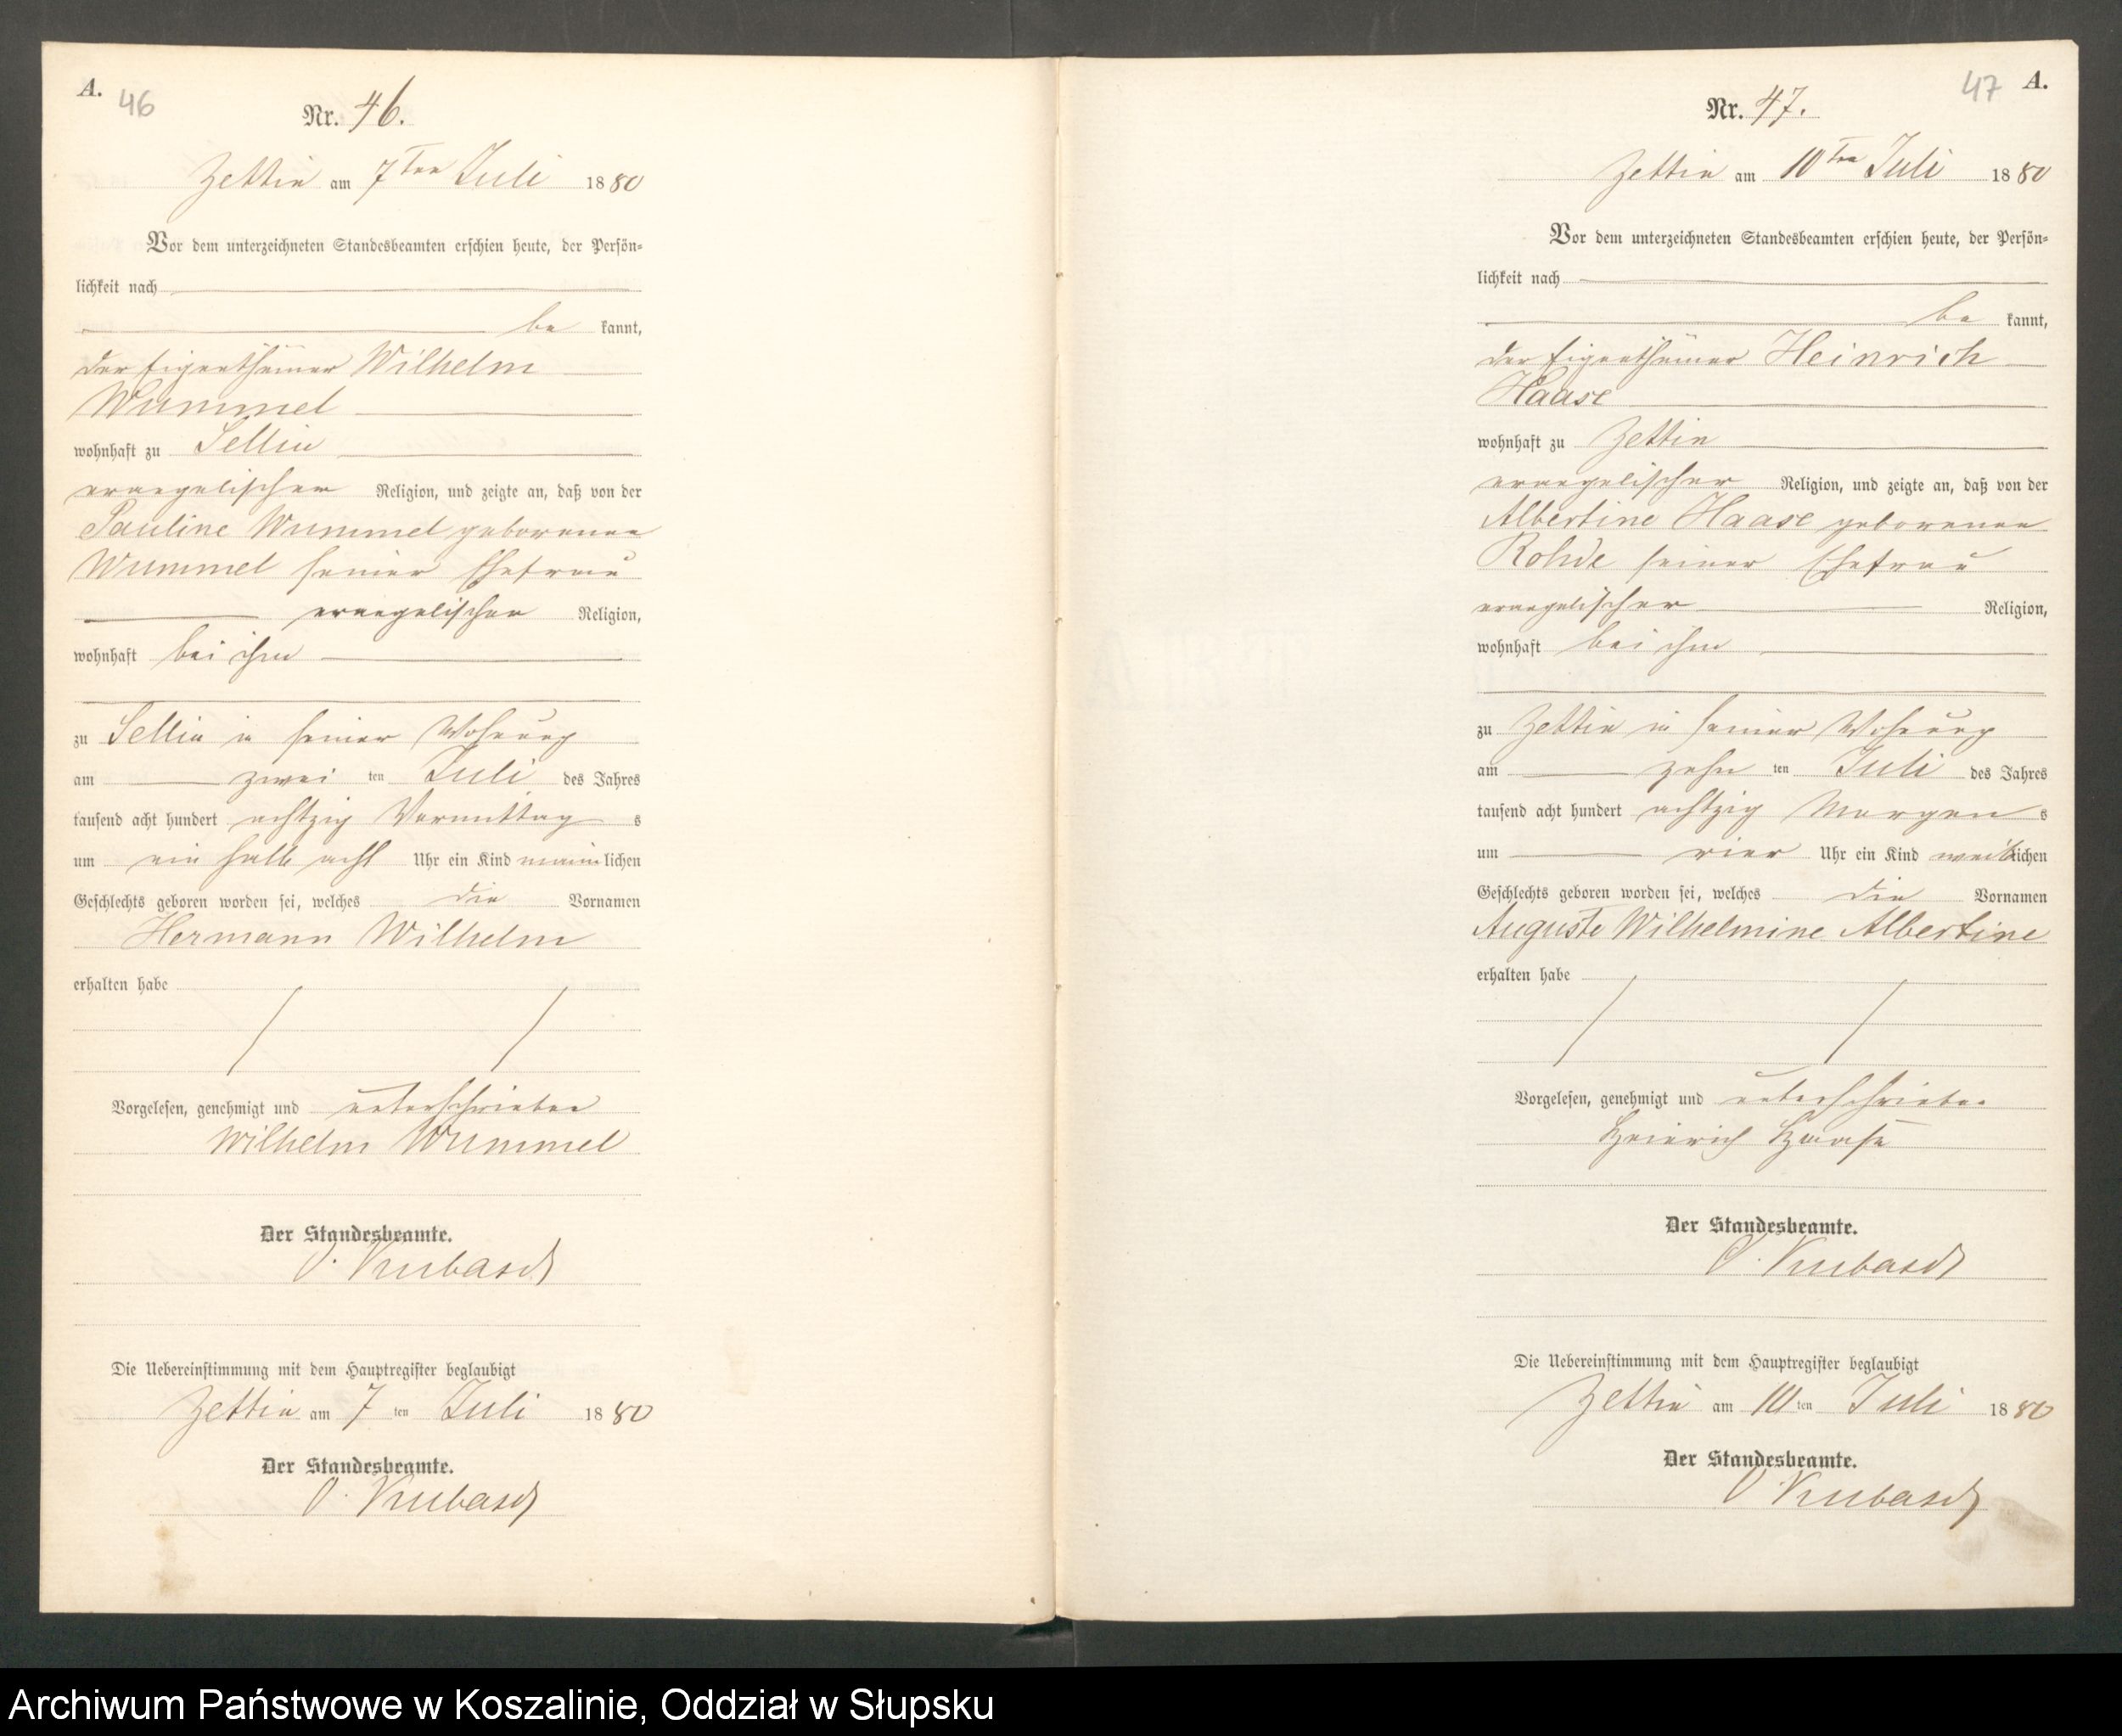 A.
46
Nr. 46.
Zettin am 7ten Juli 1880
Vor dem unterzeichneten Standesbeamten erschien heute, der Persön=
lichkeit nach
be kannt,
der Eigenthümer Wilhelm
Wummel
wohnhaft zu Sellin
evangelischer Religion, und zeigte an, daß von der
Pauline Wummel geborenen
Wummel seiner Ehefrau
evangelischer Religion,
wohnhaft bei ihm
zu Sellin in seiner Wohnung
am zwei ten Juli des Jahres
tausend acht hundert achtzig Vormittag s
um ein halb acht Uhr ein Kind männlichen
Geschlechts geboren worden sei, welches die Vornamen
Hermann Wilhelm
erhalten habe
Vorgelesen, genehmigt und unterschrieben
Wilhelm Wummel
Der Standesbeamte.
O. Kubasch
Die Uebereinstimmung mit dem Hauptregister beglaubigt
Zettin am 7 ten Juli 1880
Der Standesbeamte.
O. Kubasch
47
A.
Nr. 47.
Zettin am 10ten Juli 1880
Vor dem unterzeichneten Standesbeamten erschien heute, der Persön=
lichkeit nach
be kannt,
der Eigenthümer Heinrich
Haase
wohnhaft zu Zettin
evangelischer Religion, und zeigte an, daß von der
Albertine Haase geborenen
Rohde seiner Ehefrau
evangelischer Religion,
wohnhaft bei ihm
zu Zettin in seiner Wohnung
am zehn ten Juli des Jahres
tausend acht hundert achtzig Morgen s
um vier Uhr ein Kind weiblichen
Geschlechts geboren worden sei, welches die Vornamen
Auguste Wilhelmine Albertine
erhalten habe
Vorgelesen, genehmigt und unterschrieben
Heinrich Haase
Der Standesbeamte.
O. Kubasch
Die Uebereinstimmung mit dem Hauptregister beglaubigt
Zettin am 10 ten Juli 1880
Der Standesbeamte.
O. Kubasch
Archiwum Państwowe w Koszalinie, Oddział w Słupsku